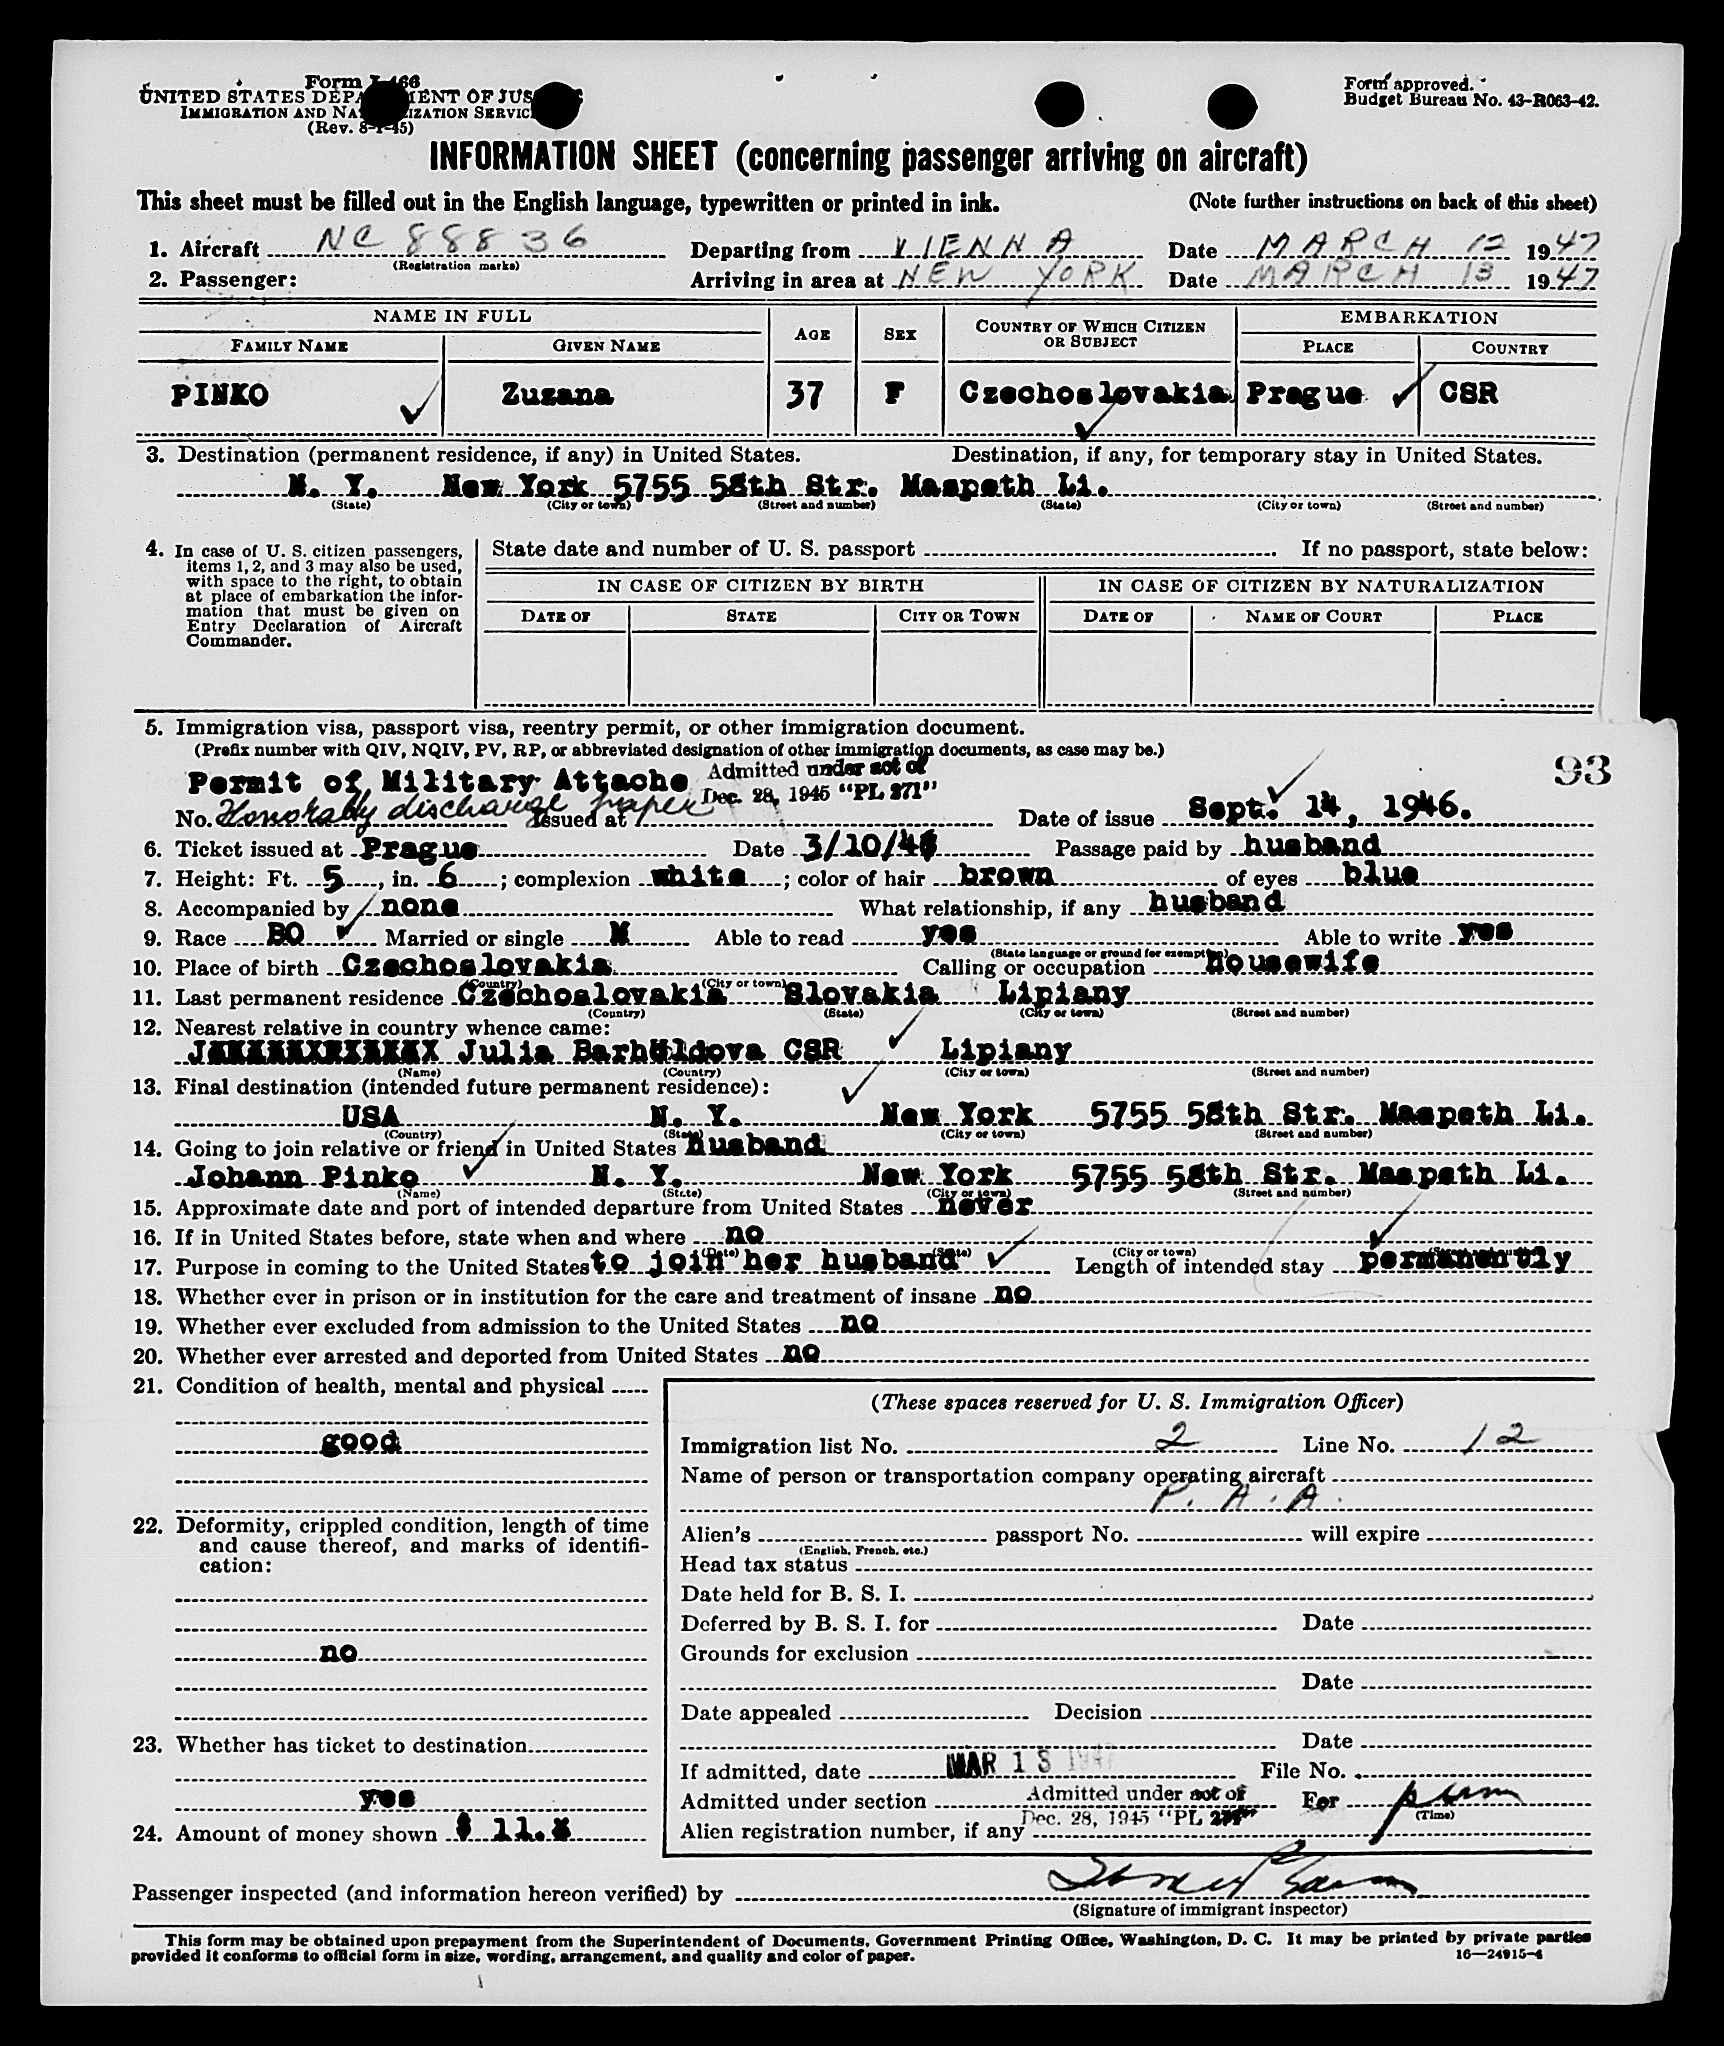 Form I-466
UNITED STATES DEPARTMENT OF JUSTICE
IMMIGRATION AND NATURALIZATION SERVICE
(Rev. 8-1-45)
Form approved.
Budget Bureau No. 43-R063-42.
INFORMATION SHEET (concerning passenger arriving on aircraft)
This sheet must be filled out in the English language, typewritten or printed in ink. (Note further instructions on back of this sheet)
1. Aircraft NC 88836 Departing from VIENNA Date MARCH 12 1947
(Registration marks)
2. Passenger: Arriving in area at NEW YORK Date MARCH 13 1947
NAME IN FULL AGE SEX COUNTRY OF WHICH CITIZEN OR SUBJECT EMBARKATION
FAMILY NAME GIVEN NAME PLACE COUNTRY
PINKO Zuzana 37 F Czechoslovakia Prague CSR
3. Destination (permanent residence, if any) in United States. Destination, if any, for temporary stay in United States.
N. Y. New York 5755 58th Str. Maspeth Li.
(State) (City or town) (Street and number) (State) (City or town) (Street and number)
4. In case of U. S. citizen passengers, items 1, 2, and 3 may also be used, with space to the right, to obtain at place of embarkation the information that must be given on Entry Declaration of Aircraft Commander.
State date and number of U. S. passport If no passport, state below:
IN CASE OF CITIZEN BY BIRTH IN CASE OF CITIZEN BY NATURALIZATION
DATE OF STATE CITY OR TOWN DATE OF NAME OF COURT PLACE
5. Immigration visa, passport visa, reentry permit, or other immigration document.
(Prefix number with QIV, NQIV, PV, RP, or abbreviated designation of other immigration documents, as case may be.)
93
Permit of Military Attache Admitted under act of
Dec. 28, 1945 "PL 271"
No. Honorably discharge paper Issued at Date of issue Sept. 14, 1946.
6. Ticket issued at Prague Date 3/10/46 Passage paid by husband
7. Height: Ft. 5, in. 6; complexion white; color of hair brown of eyes blue
8. Accompanied by none What relationship, if any husband
9. Race BO Married or single M Able to read yes Able to write yes
(State language or ground for exemption)
10. Place of birth Czechoslovakia Calling or occupation housewife
(Country) (City or town)
11. Last permanent residence Czechoslovakia Slovakia Lipiany
(Country) (State) (City or town) (Street and number)
12. Nearest relative in country whence came:
Julia Barholdova CSR Lipiany
(Name) (Country) (City or town) (Street and number)
13. Final destination (intended future permanent residence):
USA N. Y. New York 5755 58th Str. Maspeth Li.
(Country) (State) (City or town) (Street and number)
14. Going to join relative or friend in United States husband
Johann Pinko N. Y. New York 5755 58th Str. Maspeth Li.
(Name) (State) (City or town) (Street and number)
15. Approximate date and port of intended departure from United States never
16. If in United States before, state when and where no
(Date) (State) (City or town) (Street and number)
17. Purpose in coming to the United States to join her husband Length of intended stay permanently
18. Whether ever in prison or in institution for the care and treatment of insane no
19. Whether ever excluded from admission to the United States no
20. Whether ever arrested and deported from United States no
21. Condition of health, mental and physical
good
22. Deformity, crippled condition, length of time
and cause thereof, and marks of identifi-
cation:
no
23. Whether has ticket to destination
yes
24. Amount of money shown $ 11.
(These spaces reserved for U. S. Immigration Officer)
Immigration list No. 2 Line No. 12
Name of person or transportation company operating aircraft
P. A. A.
Alien's passport No. will expire
(English, French, etc.)
Head tax status
Date held for B. S. I.
Deferred by B. S. I. for Date
Grounds for exclusion
Date
Date appealed Decision
Date
If admitted, date MAR 13 1947 File No.
Admitted under section Admitted under act of For perm
Dec. 28, 1945 "PL 271" (Time)
Alien registration number, if any
Passenger inspected (and information hereon verified) by
(Signature of immigrant inspector)
This form may be obtained upon prepayment from the Superintendent of Documents, Government Printing Office, Washington, D. C. It may be printed by private parties
provided it conforms to official form in size, wording, arrangement, and quality and color of paper. 16—24915-4